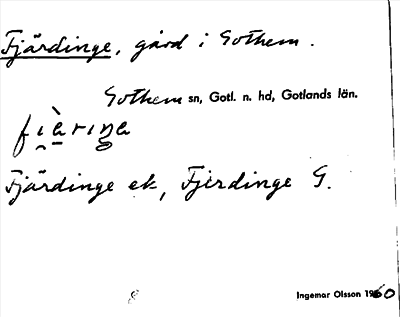 Fjärdinge, gård i Gothem.
Gothem sn, Gotl. n. hd, Gotlands län.
fi̯æ̀riŋa
Fjärdinge ek, Fjerdinge G.
Ingemar Olsson 1960